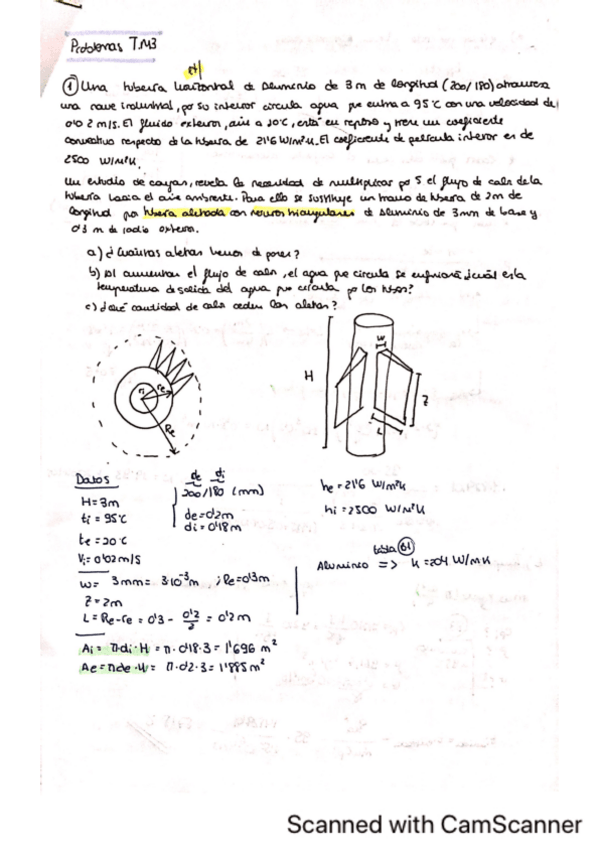 Problemas T.M3
(H)
① Una tubería horizontal de aluminio de 3 m de longitud (200/180) atraviesa
una nave industrial, por su interior circula agua que entra a 95°C con una velocidad de
0'02 m/s. El fluido exterior, aire a 20°C, está en reposo y tiene un coeficiente
convectivo respecto de la tubería de 21'6 W/m²K. El coeficiente de película interior es de
2500 W/m²K.
Un estudio de cargas, revela la necesidad de multiplicar por 5 el flujo de calor de la
tubería hacia el aire ambiente. Para ello se sustituye un tramo de tubería de 2m de
longitud por tubería aletada con nervios triangulares de aluminio de 3mm de base y
0'3 m de radio externo.
a) ¿Cuántas aletas hemos de poner?
b) Al aumentar el flujo de calor, el agua que circula se enfriará ¿cuál es la
temperatura de salida del agua que circula por los tubos?
c) ¿Qué cantidad de calor ceden las aletas?
ri re
Re
H
w
z
L
Datos
H = 3m
ti = 95°C
te = 20°C
Vi = 0'02 m/s
de di
200/180 (mm)
de = 0'2m
di = 0'18 m
he = 21'6 W/m²K
hi = 2500 W/m²K
w = 3mm = 3·10⁻³m ; Re = 0'3m
z = 2m
L = Re - re = 0'3 - 0'2/2 = 0'2m
tabla 61
Aluminio => K = 204 W/mK
Ai = π·di·H = π·0'18·3 = 1'696 m²
Ae = π·de·H = π·0'2·3 = 1'885 m²
Scanned with CamScanner